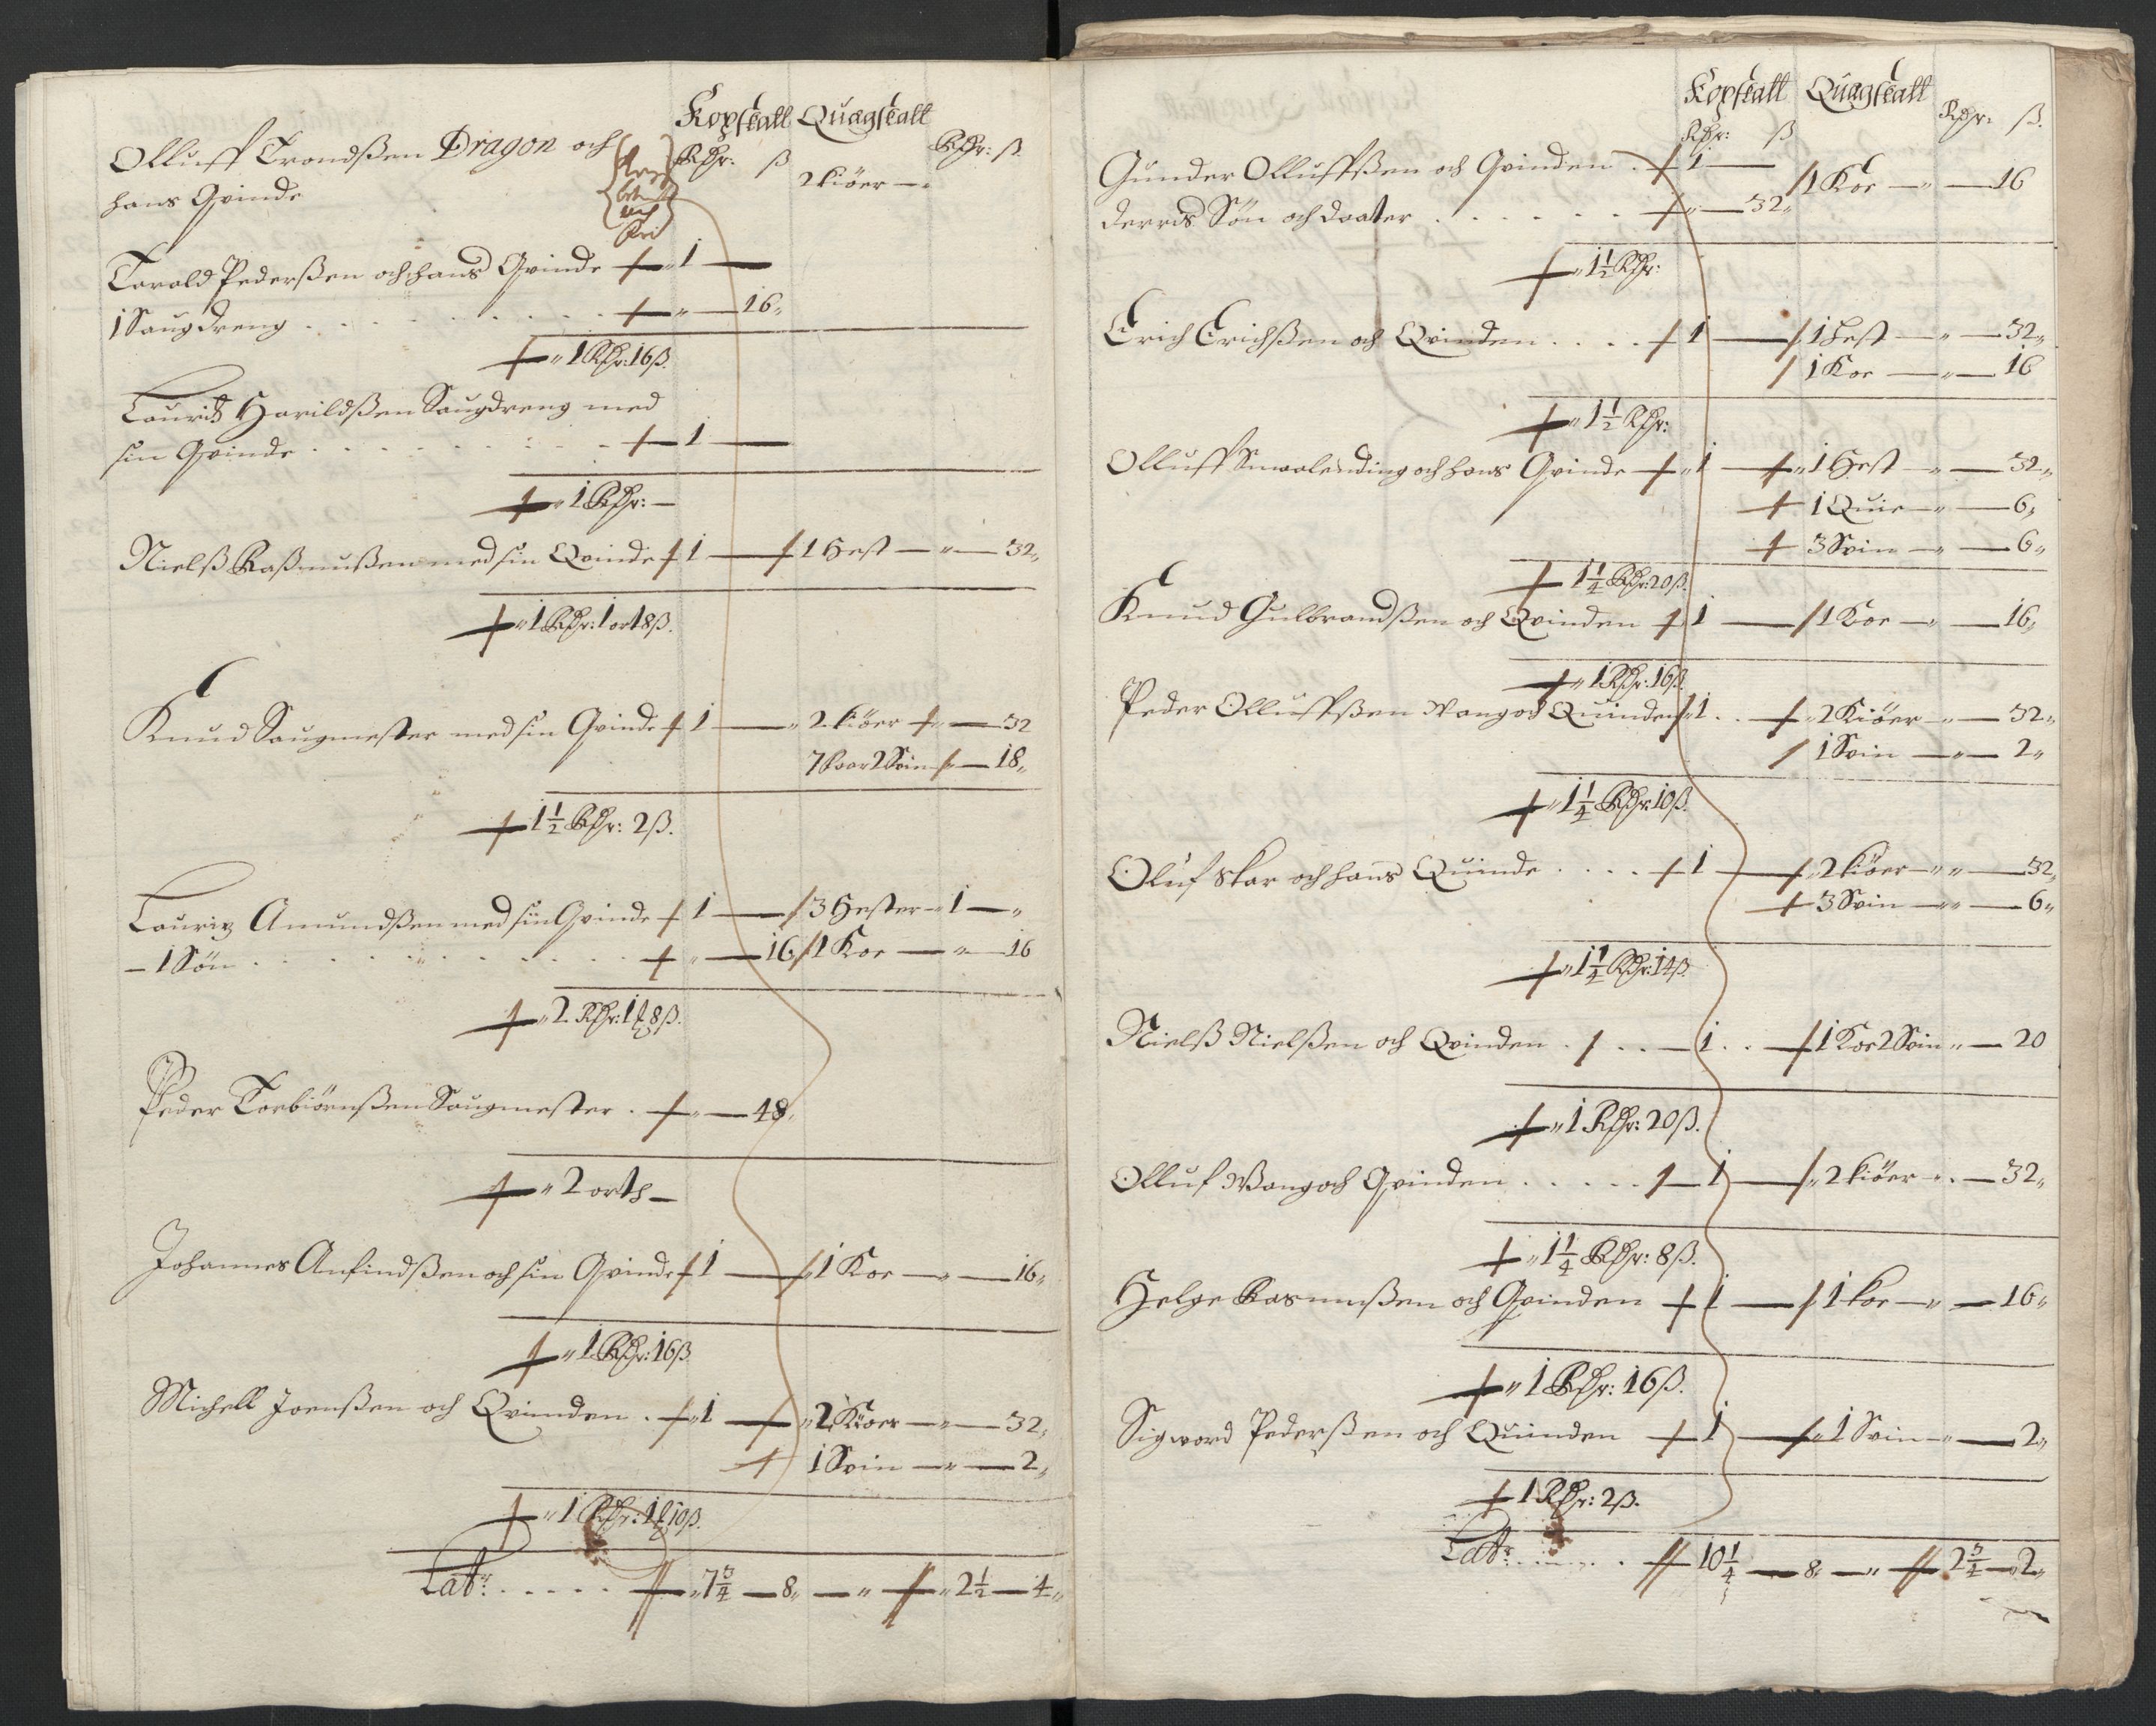 Kopskatt Quægskatt
Rdr: ß Rdr: ß
Olluff Trondßen Dragon och
hans Qvinde 2 kiöer —
Tarald Pederßen och hans Qvinde 1 —
1 Saugdreng . . . . . . . " — 16"
" 1 Rdr: 16 ß.
Lauridtz Harildßen Saugdreng med
sin Qvinde . . . . . . . 1 —
" 1 Rdr: —
Nielß Raßmußen med sin Qvinde 1 — 1 Hest — " — 32"
" 1 Rdr: 1 ort 8 ß.
Knud Saugmester med sin Qvinde 1 — " 2 kiöer " — 32
2 Svin — 18"
1 1/2 Rdr: 2 ß.
Lauriz Amundßen med sin Qvinde 1 — 3 Hester — " 1 — "
– 1 Søn . . . . . . . " — 16 1 Koe — " — 16
" 2 Rdr: 1 8 ß.
Peder Torbiörnßen Saugmester . " — 48"
" 2 orth —
Johannes Anfindßen och sin Qvinde 1 — 1 Koe — " — 16"
" 1 Rdr: 16 ß
Michell Joenßen och Qvinden . " 1 — " 2 Kiöer — " — 32"
1 Svin — " — 2"
" 1 Rdr: 1 10 ß.
Latr: . . . . . " 7 3/4 — 8" — " " 2 1/2 — 4"
Kopskatt Quægskatt
Rdr: ß Rdr: ß.
Gunder Olluffßen och Qvinden . 1 — 1 Koe — " — 16
derris Søn och daater . . . . . . " — 32"
" 1 1/2 Rdr:
Erich Erichßen och Qvinden . . . . 1 — 1 Hest — " — 32"
1 Koe — " — 16
" 1 1/2 Rdr:
Olluff Smaalending och hans Qvinde " 1 — " 1 Hest — " — 32"
1 Quie — " — 6"
3 Svin — " — 6"
1 1/4 Rdr: 20 ß.
Knud Gulbrandßen och Qvinden 1 — 1 Koe — " — 16"
" 1 Rdr: 16 ß.
Peder Olluffßen Wang och Quinden " 1 . . " 2 Kiöer — " — 32"
1 Svin — " — 2"
" 1 1/4 Rdr: 10 ß.
Oluf skar och hans Quinde . . . . 1 — " 2 kiöer — " " — 32"
3 Svin — " — 6"
" 1 1/4 Rdr: 14 ß.
Nielß Nielßen och Qvinden . . . — 1 . . — 1 Koe 2 Svin " — 20
" 1 Rdr: 20 ß.
Olluf Wang och Qvinden . . . . . 1 — " 2 kiöer " . — 32"
" 1 1/4 Rdr: 8 ß.
Helge Rasmußen och Qvinden 1 — 1 koe — " — 16"
" 1 Rdr: 16 ß.
Sigword Pederßen och Quinden 1 — " 1 Svin — " — 2"
1 Rdr: 2 ß.
Latr: . . . . . 10 1/4 — 8" — " 2 3/4 — 2"